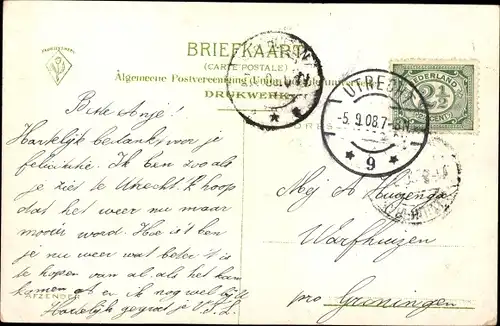 BRIEFKAART
(CARTE POSTALE)
Algemeene Postvereeniging (Union
DRUKWERK
NEDERLAND
2½
CENT
UTRECHT
5.9.08.7-8N
9
Beste Anje!
Hartelijk bedankt voor je
felicitatie. Ik ben zoo als
je ziet te Utrecht. Ik hoop
dat het weer nu maar
mooier word. Hoe is 't ben
je nu weer wat beter 't is
te hopen van al. als het kan
komen er. Ik nog wel bij te
Hartelijk gegroet je V.S.L.
AFZENDER
Mej A Huizenga
Warfhuizen
pro Groningen